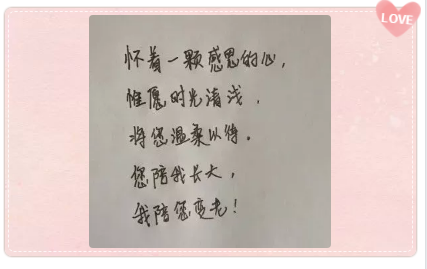 LOVE
怀着一颗感恩的心，
惟愿时光清浅，
将您温柔以待。
您陪我长大，
我陪您变老！